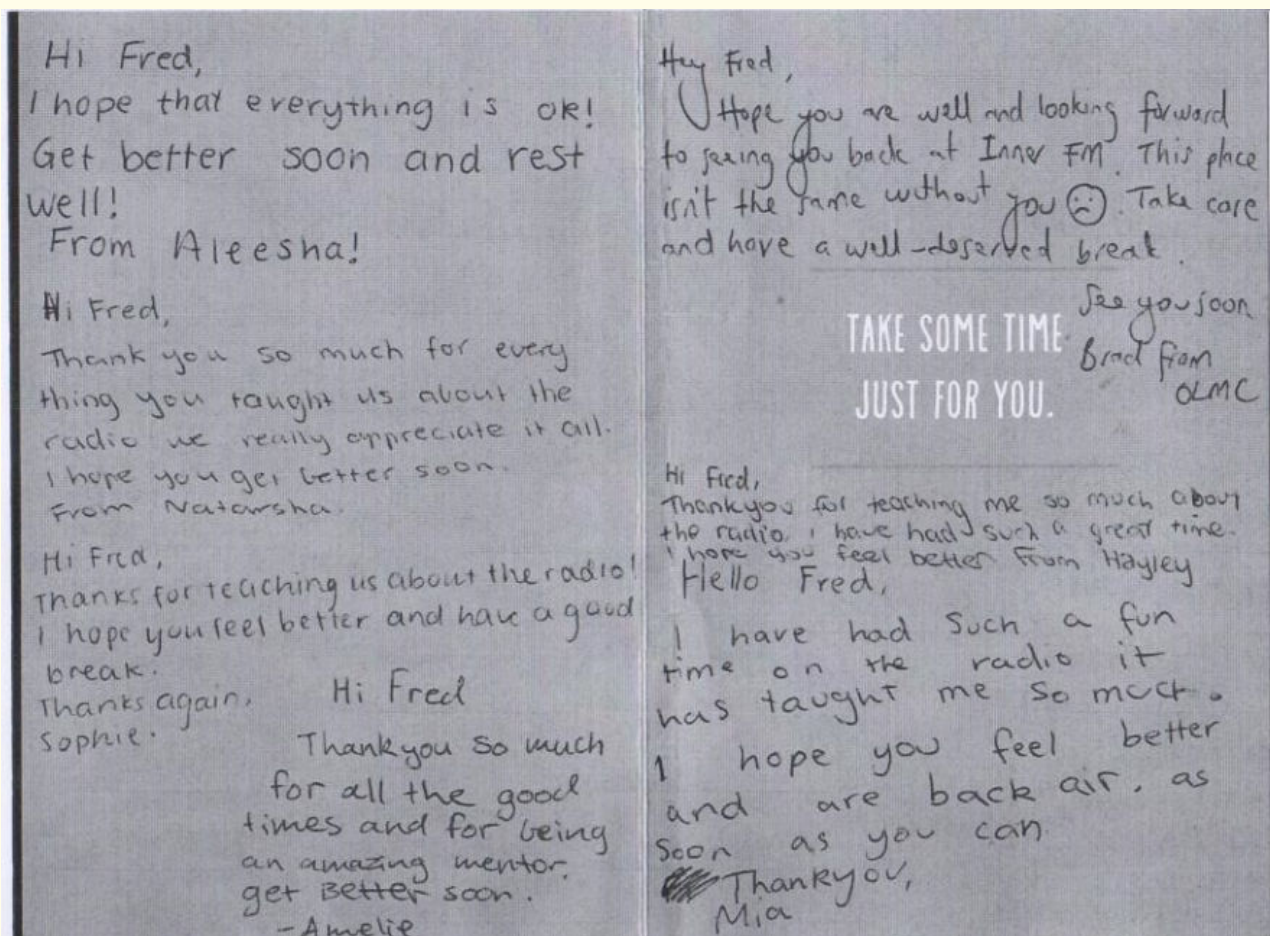 Hi Fred,
I hope that everything is ok!
Get better soon and rest
well!
From Aleesha!
Hi Fred,
Thank you so much for every
thing you taught us about the
radio we really appreciate it all.
I hope you get better soon.
From Natarsha.
Hi Fred,
Thanks for teaching us about the radio!
I hope you feel better and have a good
break.
Thanks again,
Sophie.
Hi Fred
Thankyou so much
for all the good
times and for being
an amazing mentor.
get Better soon.
- Amelie
Hey Fred,
Hope you are well and looking forward
to seeing you back at Inner FM. This place
isn't the same without you ☹. Take care
and have a well-deserved break.
See you soon
Brad from
OLMC
TAKE SOME TIME
JUST FOR YOU.
Hi Fred,
Thankyou for teaching me so much about
the radio, i have had such a great time.
I hope you feel better From Hayley
Hello Fred,
I have had such a fun
time on the radio it
has taught me so much.
I hope you feel better
and are back air. as
soon as you can
Thankyou,
Mia